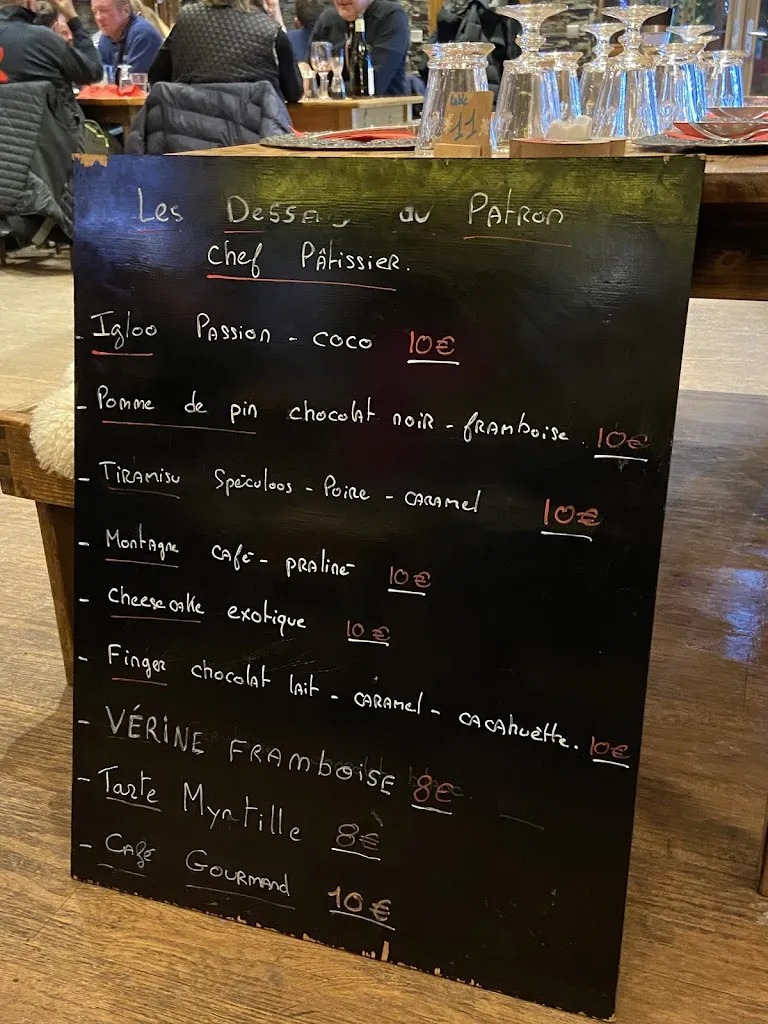 Les Dessert au Patron
Chef Pâtissier.
- Igloo Passion - coco 10€
- Pomme de pin chocolat noir - framboise. 10€
- Tiramisu Spéculoos - Poire - caramel 10€
- Montagne café - praliné 10€
- Cheesecake exotique 10€
- Finger chocolat lait - caramel - cacahuètte. 10€
- VÉRINE FRAMboiSE 8€
- Tarte Myrtille 8€
- Café Gourmand 10€
11